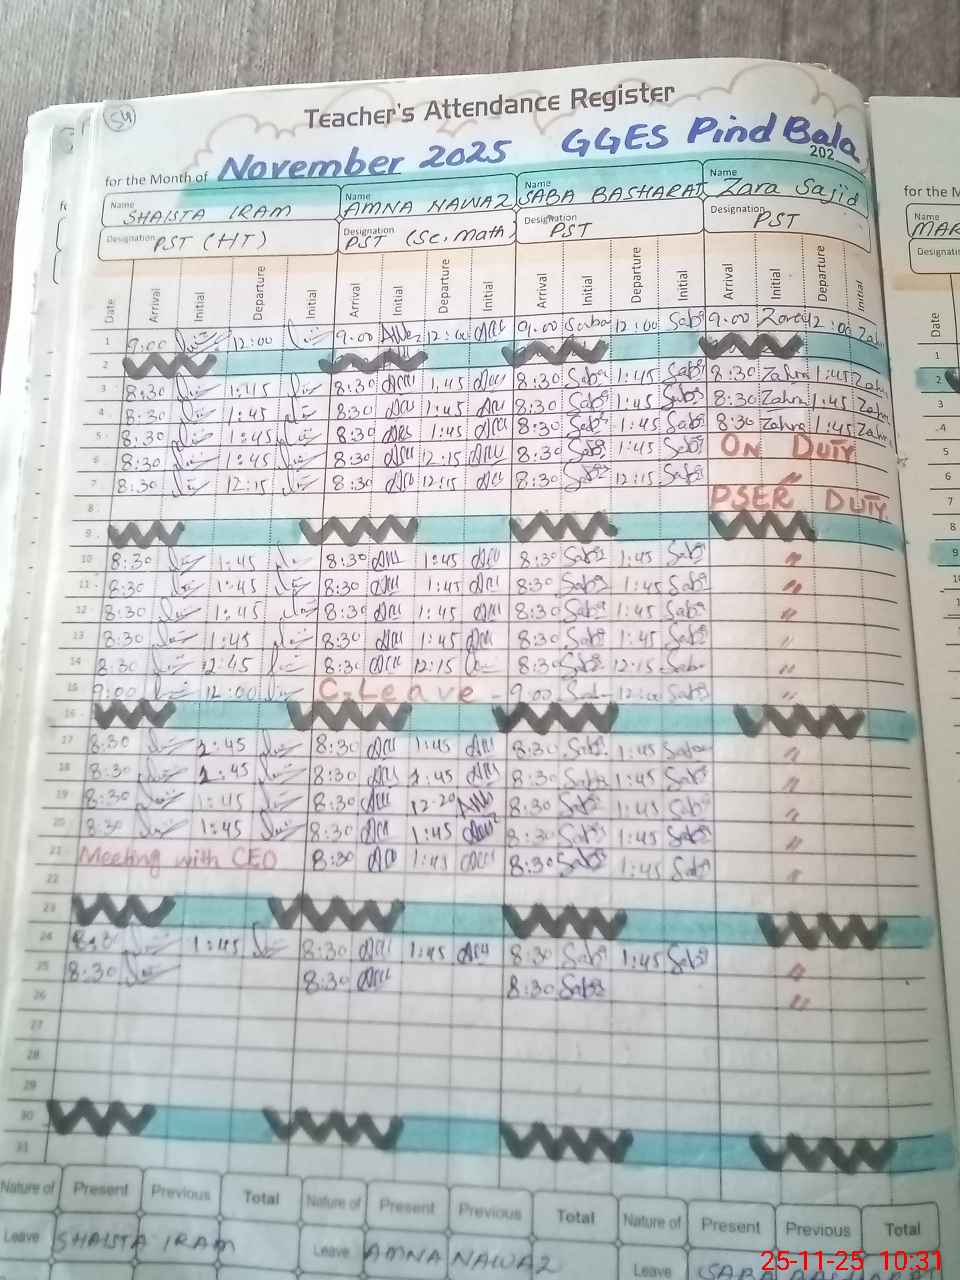 54
Teacher's Attendance Register
for the Month of November 2025 GGES Pind Bala 202
Name SHAISTA IRAM Name AMNA NAWAZ Name SABA BASHARAT Name Zara Sajid
Designation PST (HT) Designation PST (Sc. Math) Designation PST Designation PST
Date Arrival Initial Departure Initial Arrival Initial Departure Initial Arrival Initial Departure Initial Arrival Initial Departure Initial
1 9:00 12:00 9:00 12:00 9:00 Saba 12:00 Saba 9:00 Zara 12:00
2
3 8:30 1:45 8:30 1:45 8:30 Saba 1:45 Saba 8:30 Zahra 1:45 Zahra
4 8:30 1:45 8:30 1:45 8:30 Saba 1:45 Saba 8:30 Zahra 1:45 Zahra
5 8:30 1:45 8:30 1:45 8:30 Saba 1:45 Saba 8:30 Zahra 1:45 Zahra
6 8:30 1:45 8:30 12:15 8:30 Saba 1:45 Saba ON DUTY
7 8:30 12:15 8:30 12:15 8:30 Saba 12:15 Saba "
8 PSER DUTY
9
10 8:30 1:45 8:30 1:45 8:30 Saba 1:45 Saba "
11 8:30 1:45 8:30 1:45 8:30 Saba 1:45 Saba "
12 8:30 1:45 8:30 1:45 8:30 Saba 1:45 Saba "
13 8:30 1:45 8:30 1:45 8:30 Saba 1:45 Saba "
14 8:30 12:45 8:30 12:15 8:30 Saba 12:15 Saba "
15 9:00 12:00 C-Leave - 9:00 12:00 Saba "
16
17 8:30 1:45 8:30 1:45 8:30 Saba 1:45 Saba "
18 8:30 1:45 8:30 1:45 8:30 Saba 1:45 Saba "
19 8:30 1:45 8:30 12:20 8:30 Saba 1:45 Saba "
20 8:30 1:45 8:30 1:45 8:30 Saba 1:45 Saba "
21 Meeting with CEO 8:30 1:45 8:30 Saba 1:45 Saba "
22
23
24 8:30 1:45 8:30 1:45 8:30 Saba 1:45 Saba "
25 8:30 8:30 8:30 Saba "
26
27
28
29
30
31
Nature of Leave Present Previous Total Nature of Leave Present Previous Total Nature of Leave Present Previous Total
SHAISTA IRAM AMNA NAWAZ SABA
for the M
Name MAR
Designati
Date
1
2
3
4
5
6
7
8
9
10
25-11-25 10:31